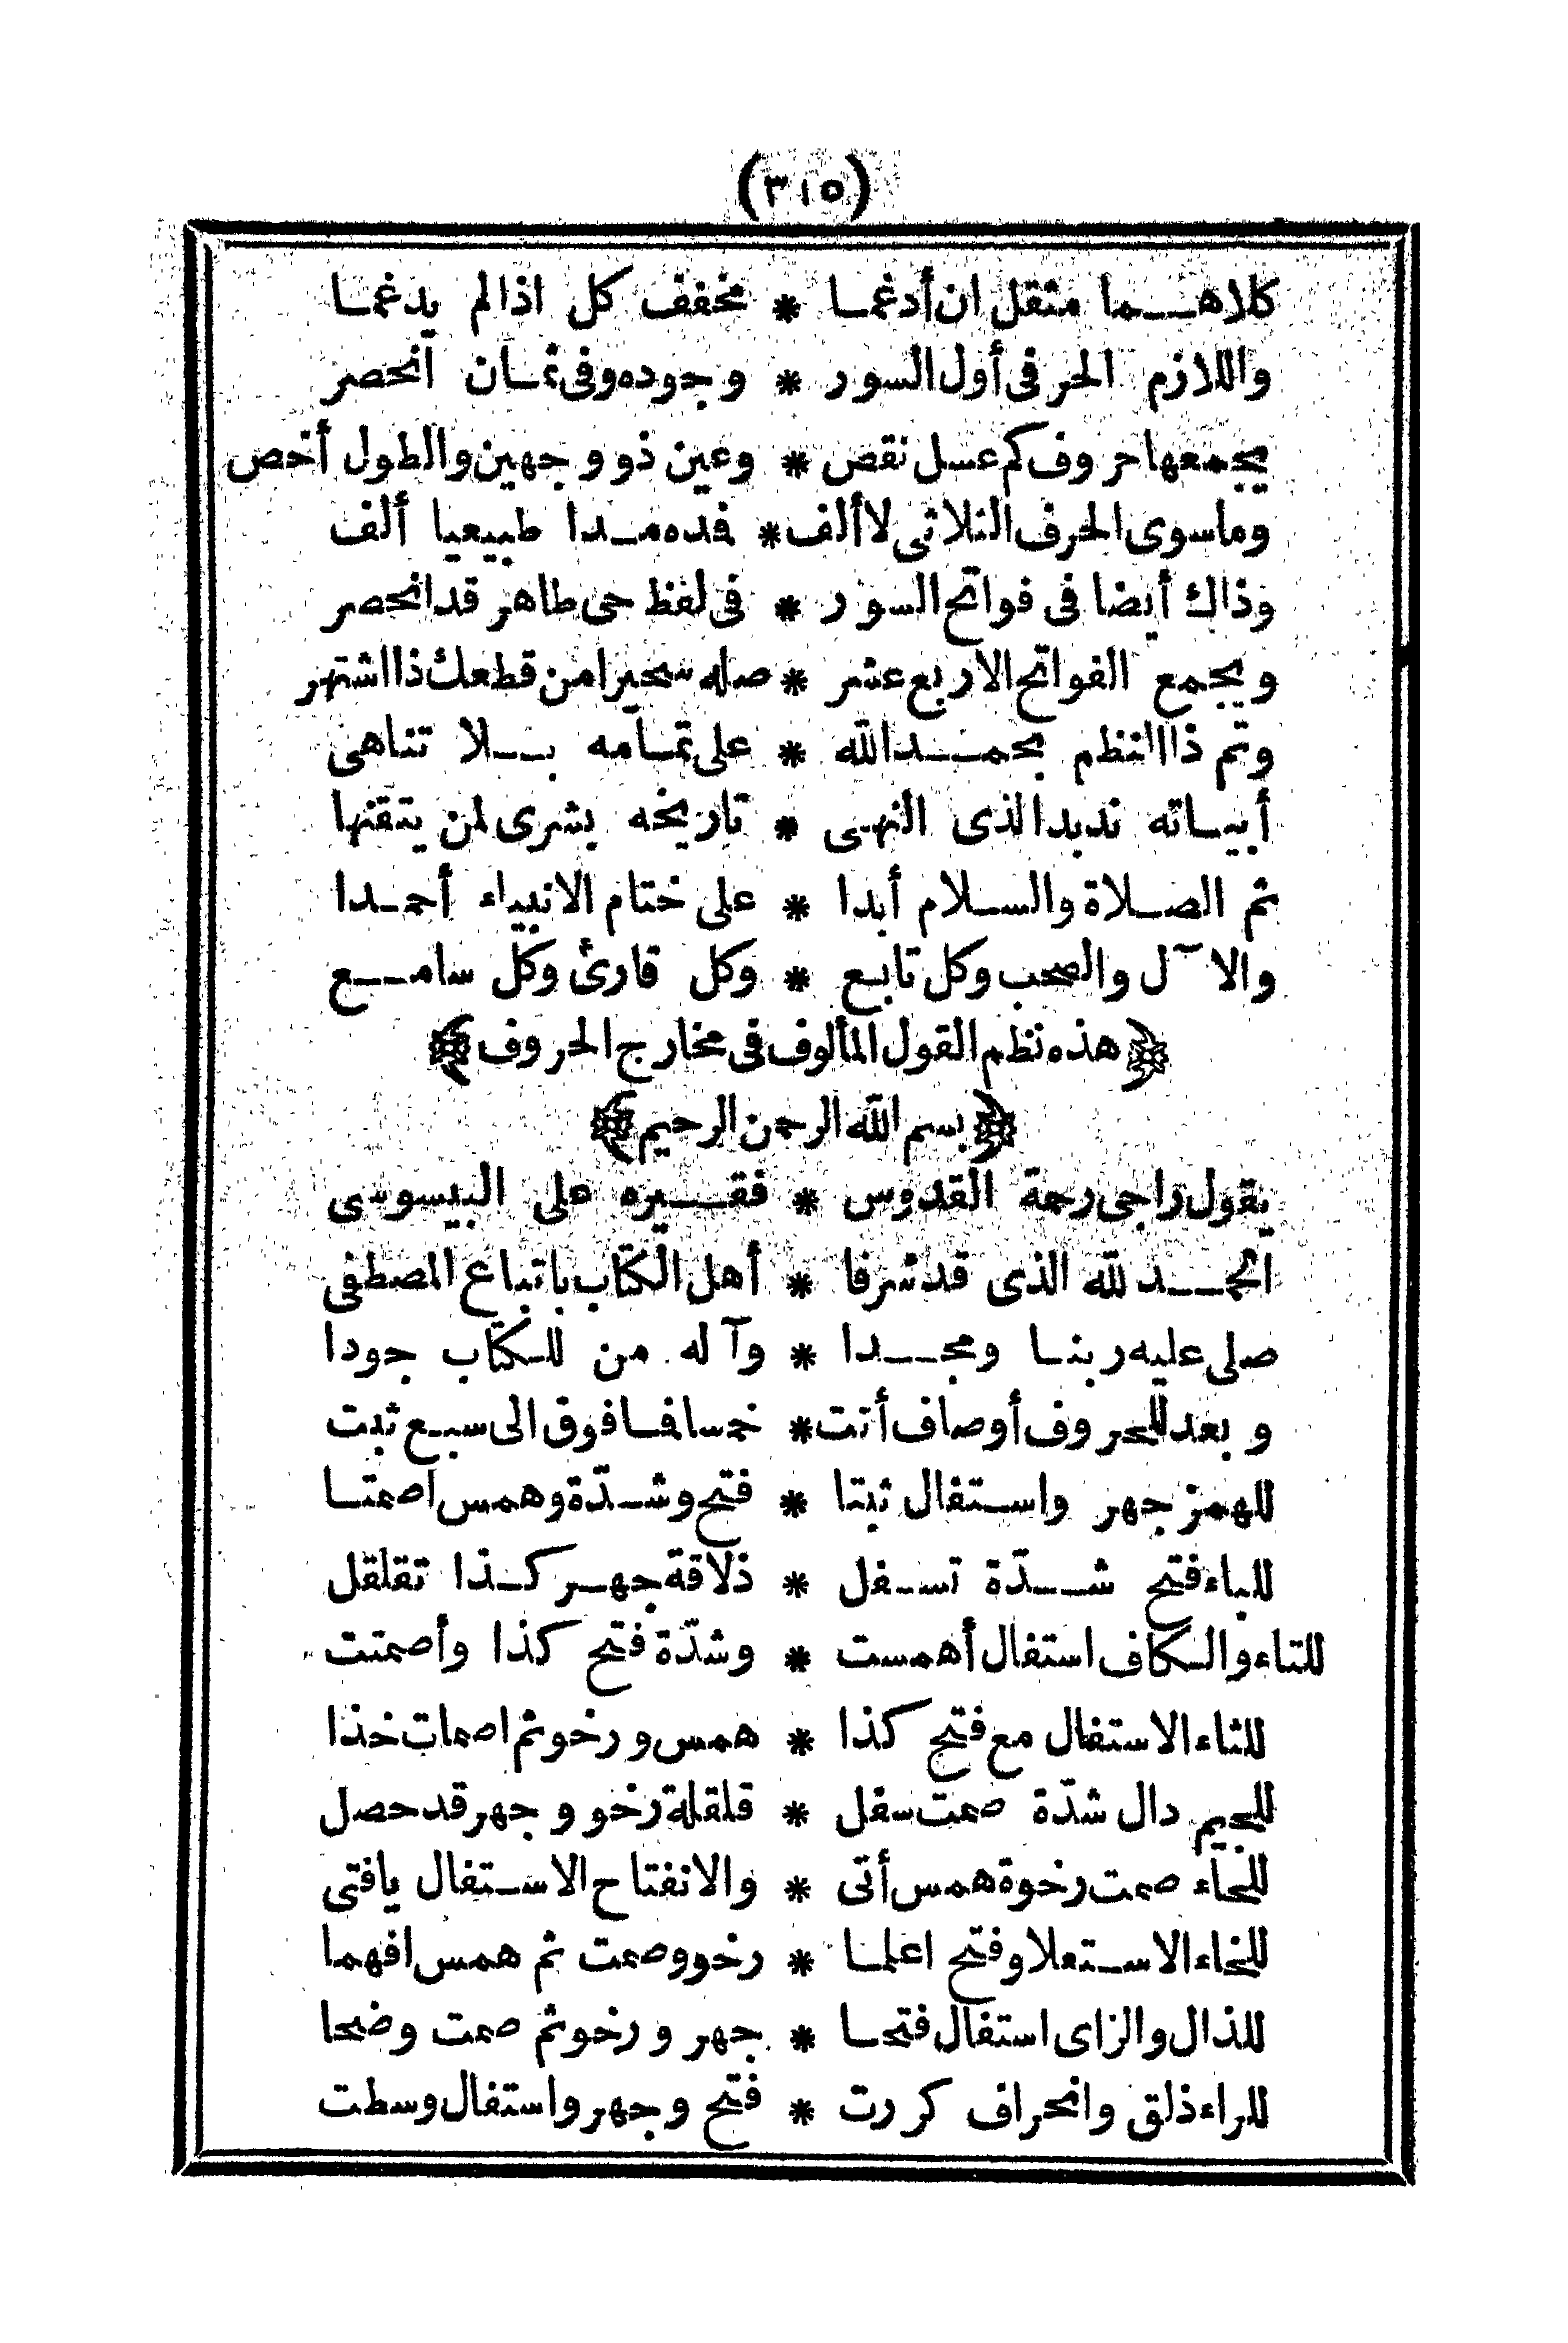 (٣١٥)
كلاهما مثقل ان أدغما * مخفف كل اذا لم يدغما
واللازم الحرفى أول السور * وجوده وفى ثمان انحصر
يجمعها حروف كم عسل نقص * وعين ذو وجهين والطول أخص
وما سوى الحرف الثلاثى لا ألف * فده مدا طبيعيا ألف
وذاك أيضا فى فواتح السور * فى لفظ حى طاهر قد انحصر
ويجمع الفواتح الاربع عشر * صله سحيرا من قطعك ذا اشتهر
وتم ذا النظم بحمد الله * على تمامه بلا تناهى
أبياته ند بد الذى النهى * تاريخه بشرى لمن يتقنها
ثم الصلاة والسلام أبدا * على ختام الانبياء أحمدا
والا ّل والصحب وكل تابع * وكل قارئ وكل سامع
﴿هذه نظم القول المألوف فى مخارج الحروف﴾
﴿بسم الله الرحمن الرحيم﴾
يقول راجى رحمة القدوس * فقيره على البيسوسى
الحمد لله الذى قد شرفا * أهل الكتاب باتباع المصطفى
صلى عليه ربنا ومجدا * وآله من للكتاب جودا
وبعد للحروف أوصاف أتت * خمسا فما فوق الى سبع ثبت
للهمز جهر واستفال ثبتا * فتح وشدّة وهمس اصمتا
للباء فتح شدّة تسفل * ذلاقة جهر كذا تقلقل
للتاء والكاف استفال أهمست * وشدّة فتح كذا وأصمتت
للثاء الاستفال مع فتح كذا * همس ورخو ثم اصمات خذا
للجيم دال شدّة صمت سفل * قلقلة رخو و جهر قد حصل
للحاء صمت رخوة همس أتى * والانفتاح الاستفال يافتى
للخاء الاستعلا وفتح اعلما * رخو وصمت ثم همس افهما
للذال والزاى استفال فتحا * جهر ورخو ثم صمت وضحا
للراء ذلق وانحراف كررت * فتح وجهر واستفال وسطت